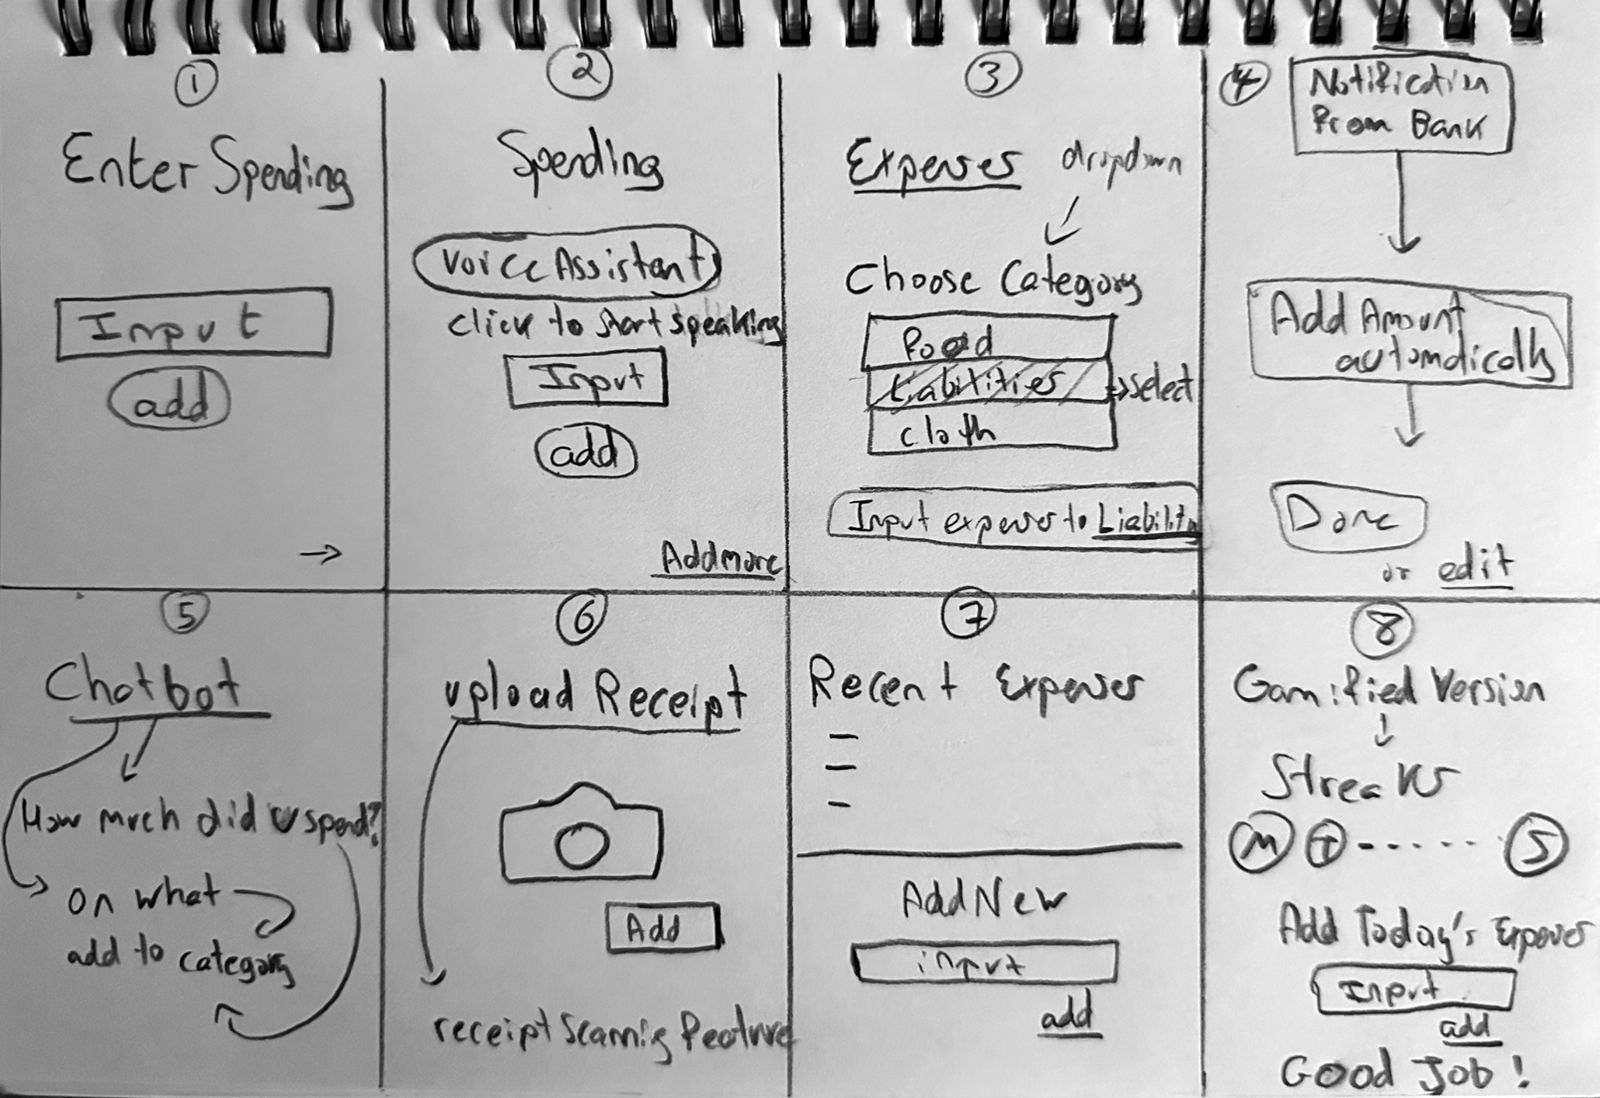 1
Enter Spending
Input
add
→
2
Spending
Voice Assistant
click to start speaking
Input
add
Add more
3
Expenses dropdown
Choose Category
Food
Liabilities → select
cloth
Input expenses to Liability
4
Notification
From Bank
Add Amount
automatically
Done
or edit
5
Chatbot
How much did u spend?
on what
add to category
6
upload Receipt
Add
receipt Scannig Feature
7
Recent Expenses
Add New
input
add
8
Gamified Version
Streaks
M T ...... S
Add Today's Expenses
Input
add
Good Job!